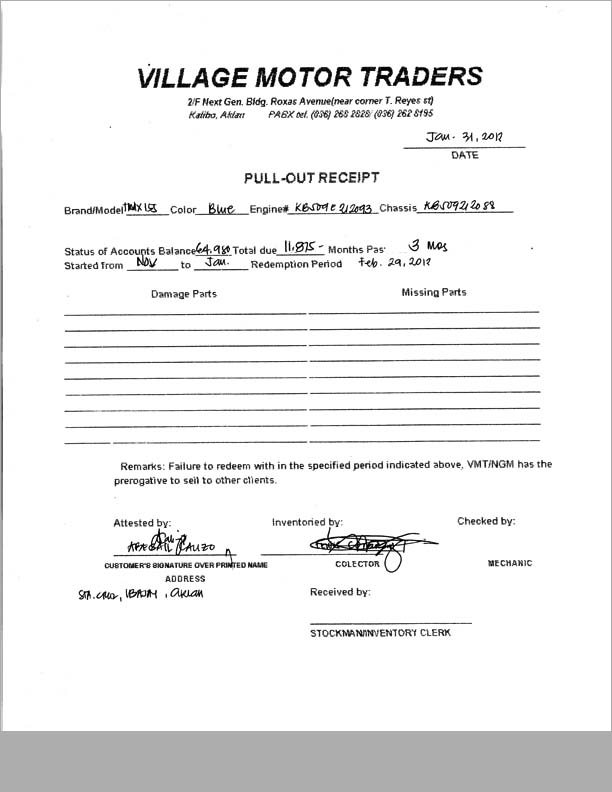 VILLAGE MOTOR TRADERS
2/F Next Gen. Bldg. Roxas Avenue(near corner T. Reyes st)
Kalibo, Aklan PABX tel. (036) 268 2828/ (036) 262 8195
Jan. 31, 2012
DATE
PULL-OUT RECEIPT
Brand/Model TMX 155 Color Blue Engine# KB509E212093 Chassis KB509212088
Status of Accounts Balance 64,980 Total due 11,875- Months Pas 3 mos
Started from Nov to Jan. Redemption Period Feb. 29, 2012
Damage Parts Missing Parts
Remarks: Failure to redeem with in the specified period indicated above, VMT/NGM has the
prerogative to sell to other clients.
Attested by: Inventoried by: Checked by:
CUSTOMER'S SIGNATURE OVER PRINTED NAME COLECTOR MECHANIC
ADDRESS
Sta. Cruz, Ibajay, Aklan Received by:
STOCKMAN/INVENTORY CLERK